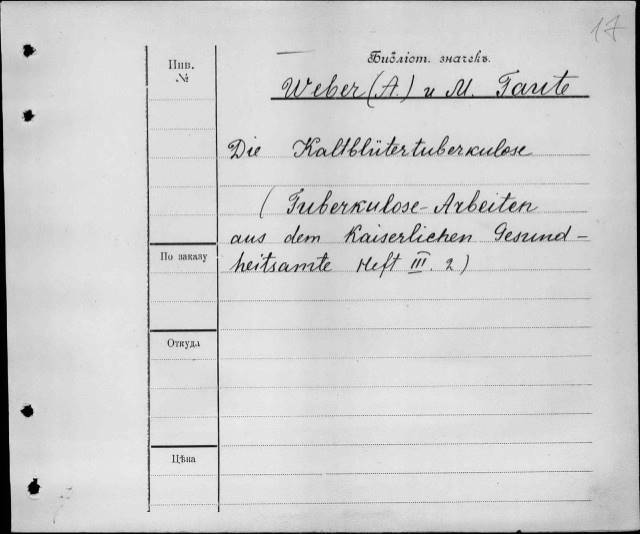 17
Инв.
№
Библіот. значекъ.
Weber (A.) u M. Taute
Die Kaltblütertuberkulose
(Tuberkulose-Arbeiten
aus dem Kaiserlichen Gesund-
heitsamte Heft III. 2)
По заказу
Откуда
Цѣна